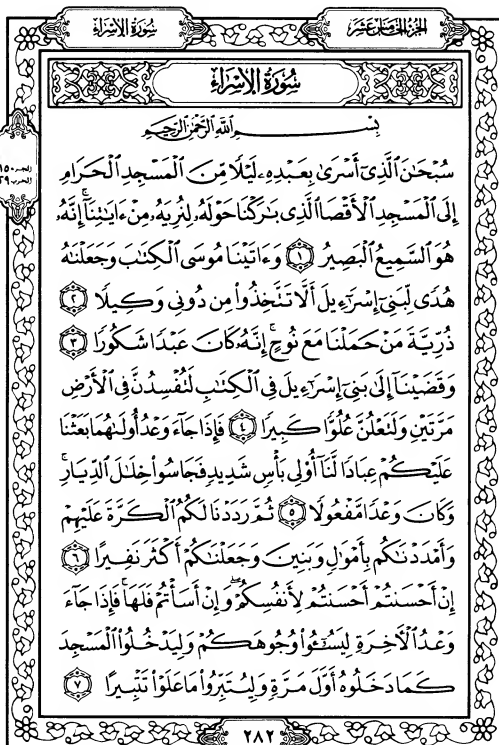 سُورَةُ الإِسۡرَاءِ
الجُزءُ الخَامِسَ عَشَرَ
سُورَةُ الإِسۡرَاءِ
بِسۡمِ ٱللَّهِ ٱلرَّحۡمَٰنِ ٱلرَّحِيمِ
سُبۡحَٰنَ ٱلَّذِيٓ أَسۡرَىٰ بِعَبۡدِهِۦ لَيۡلٗا مِّنَ ٱلۡمَسۡجِدِ ٱلۡحَرَامِ
إِلَى ٱلۡمَسۡجِدِ ٱلۡأَقۡصَا ٱلَّذِي بَٰرَكۡنَا حَوۡلَهُۥ لِنُرِيَهُۥ مِنۡ ءَايَٰتِنَآۚ إِنَّهُۥ
هُوَ ٱلسَّمِيعُ ٱلۡبَصِيرُ ۝١ وَءَاتَيۡنَا مُوسَى ٱلۡكِتَٰبَ وَجَعَلۡنَٰهُ
هُدٗى لِّبَنِيٓ إِسۡرَٰٓءِيلَ أَلَّا تَتَّخِذُواْ مِن دُونِي وَكِيلٗا ۝٢
ذُرِّيَّةَ مَنۡ حَمَلۡنَا مَعَ نُوحٍۚ إِنَّهُۥ كَانَ عَبۡدٗا شَكُورٗا ۝٣
وَقَضَيۡنَآ إِلَىٰ بَنِيٓ إِسۡرَٰٓءِيلَ فِي ٱلۡكِتَٰبِ لَتُفۡسِدُنَّ فِي ٱلۡأَرۡضِ
مَرَّتَيۡنِ وَلَتَعۡلُنَّ عُلُوّٗا كَبِيرٗا ۝٤ فَإِذَا جَآءَ وَعۡدُ أُولَىٰهُمَا بَعَثۡنَا
عَلَيۡكُمۡ عِبَادٗا لَّنَآ أُوْلِي بَأۡسٖ شَدِيدٖ فَجَاسُواْ خِلَٰلَ ٱلدِّيَارِۚ
وَكَانَ وَعۡدٗا مَّفۡعُولٗا ۝٥ ثُمَّ رَدَدۡنَا لَكُمُ ٱلۡكَرَّةَ عَلَيۡهِمۡ
وَأَمۡدَدۡنَٰكُم بِأَمۡوَٰلٖ وَبَنِينَ وَجَعَلۡنَٰكُمۡ أَكۡثَرَ نَفِيرًا ۝٦
إِنۡ أَحۡسَنتُمۡ أَحۡسَنتُمۡ لِأَنفُسِكُمۡۖ وَإِنۡ أَسَأۡتُمۡ فَلَهَاۚ فَإِذَا جَآءَ
وَعۡدُ ٱلۡأٓخِرَةِ لِيَسُـُٔواْ وُجُوهَكُمۡ وَلِيَدۡخُلُواْ ٱلۡمَسۡجِدَ
كَمَا دَخَلُوهُ أَوَّلَ مَرَّةٖ وَلِيُتَبِّرُواْ مَا عَلَوۡاْ تَتۡبِيرًا ۝٧
٢٨٢